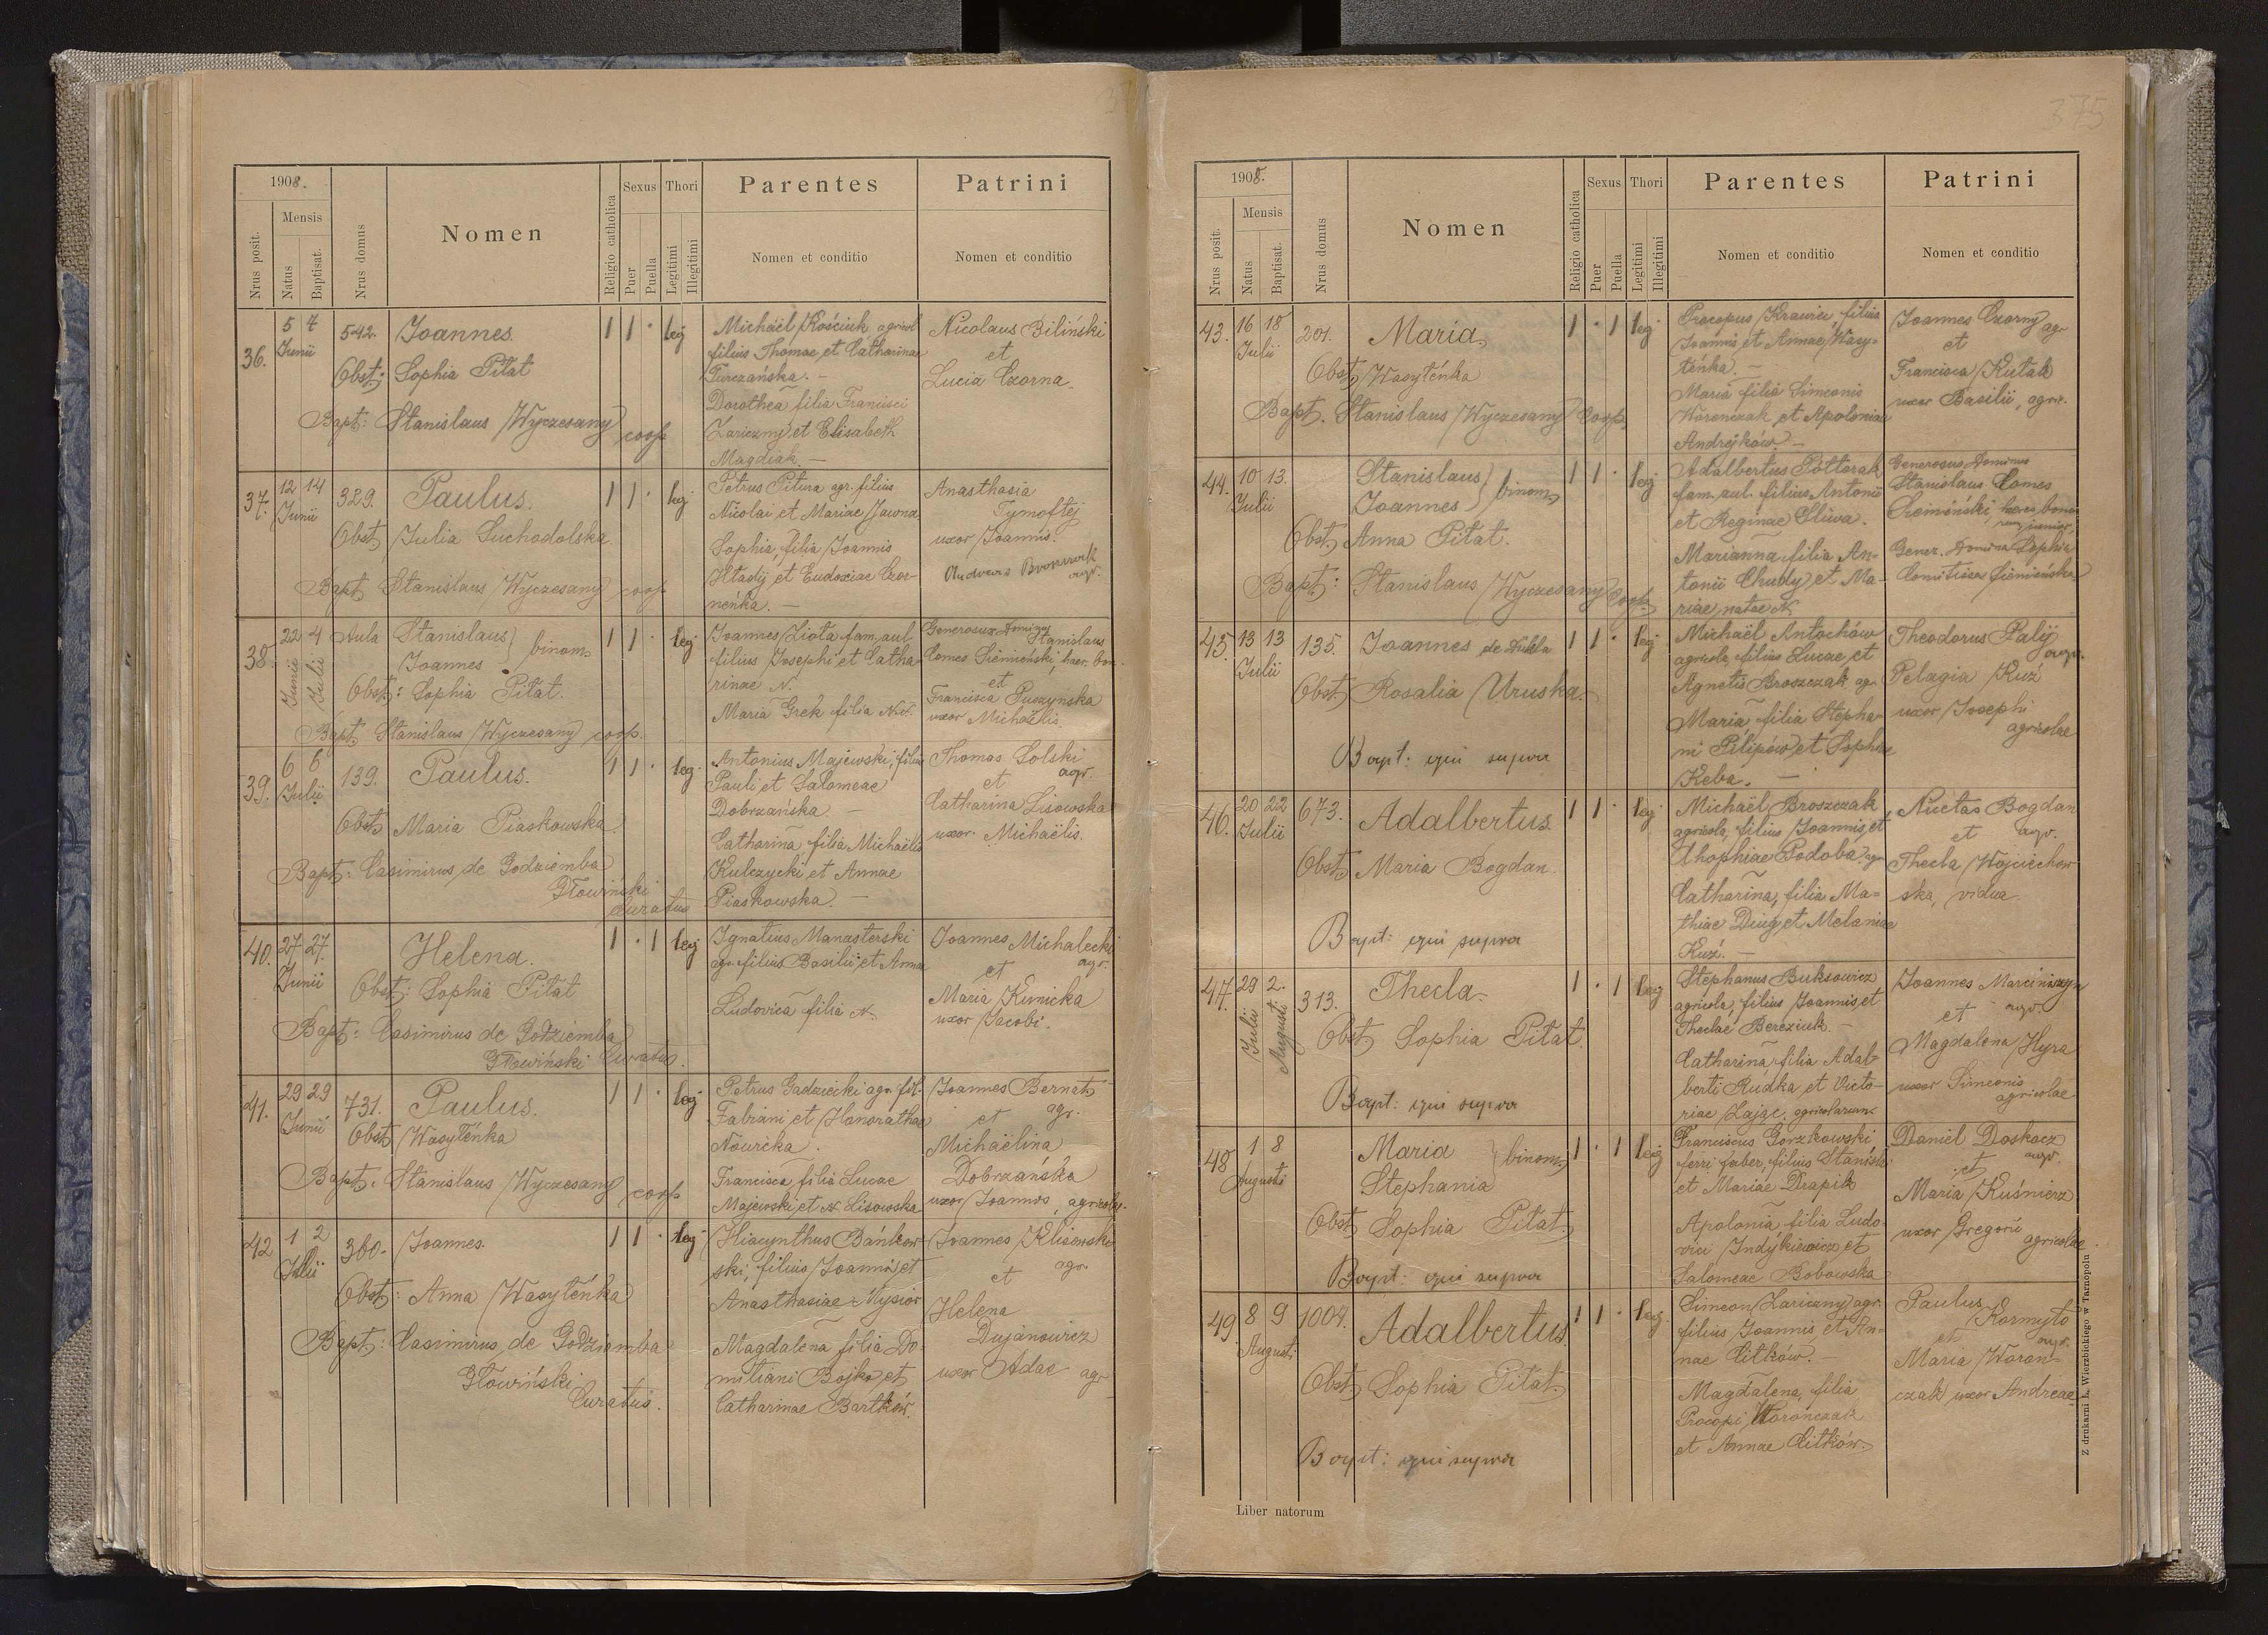 375
1908.
Nrus posit.
Mensis
Natus
Baptisat.
Nrus domus
Nomen
Religio catholica
Sexus
Puer
Puella
Thori
Legitimi
Illegitimi
Parentes
Nomen et conditio
Patrini
Nomen et conditio
36.
5 7
Junii
542.
Joannes.
Obst: Sophia Pitat
Bapt: Stanislaus Wyczesany coop
1 1 · leg
Michaël Kościuk agricol
filius Thomae et Catharinae
Turczańska. —
Dorothea filia Francisci
Zariczny et Elisabeth
Magdiak. —
Nicolaus Biliński
et
Lucia Czorna.
37.
12 14
Junii
329.
Paulus.
Obst Julia Suchodolska.
Bapt Stanislaus Wyczesany coop
1 1 · leg
Petrus Pitura agr. filius
Nicolai et Mariae Jawna
Sophia, filia Joannis
Hladij et Eudoxiae Czor-
neńka. —
Anasthasia
Tymoftej
uxor Joannis.
agr.
38.
22 4
Junii Julii
Aula
Stanislaus
Joannes } binom
Obst: Sophia Pitat.
Bapt Stanislaus Wyczesany coop.
1 1 · leg
Joannes Ziota fam. aul
filius Josephi et Catha
rinae N.
Maria Grek filia N.
Generosus Dominus Stanislaus
Comes Siemieński, haer. bon.
et
Francisca Puczynska
uxor Michaelis.
39.
6 6
Julii
139.
Paulus.
Obst Maria Piaskowska.
Bapt: Casimirus de Godziemba
Głowiński
Curatus
1 1 · leg.
Antonius Majewski, filius
Pauli et Salomeae
Dobrzańska. —
Catharina filia Michaëlis
Kulczycki et Annae
Piaskowska. —
Thomas Solski
et agr.
Catharina Lisowska
uxor. Michaëlis.
40.
27 27.
Junii
Helena.
Obst: Sophia Pitat
Bapt: Casimirus de Godziemba
Głowiński Curatus.
1 · 1 leg
Ignatius Manasterski
agr. filius Basilii et Anna
Ludovica filia N.
Joannes Michalecki
et agr.
Maria Kinicka
uxor Jacobi.
41.
29 29
Junii
731.
Paulus.
Obst Wasyleńka
Bapt: Stanislaus Wyczesany coop
1 1 · leg
Petrus Gadzicki agr. fil.
Fabiani et Honorathae
Nowicka.
Francisca filia Lucae
Majewski, et N Lisowska
Joannes Bernat
et agr.
Michaelina
Dobrzańska
uxor Joannis, agricolae.
42
1 2
Julii
360.
Joannes.
Obst: Anna Wasyleńka
Bapt: Casimirus de Godziemba
Głowiński
Curatus.
1 1 · leg
Hiacynthus Bańkow-
ski, filius Joannis et
Anasthasiae Wysior
Magdalena filia Do-
mitiani Bojko et
Catharinae Bartków.
Joannes Klisowski
et agr.
Helena
Dujanowicz
uxor Adae agr
1908.
Nrus posit.
Mensis
Natus
Baptisat.
Nrus domus
Nomen
Religio catholica
Sexus
Puer
Puella
Thori
Legitimi
Illegitimi
Parentes
Nomen et conditio
Patrini
Nomen et conditio
43.
16 18
Julii
201.
Maria.
Obst Wasyleńka
Bapt. Stanislaus Wyczesany Coop.
1 · 1 leg
Procopus Krawiec, filius
Joannis et Annae Wasy-
leńka. —
Maria filia Simeonis
Worończak et Apoloniae
Andrejków —
Joannes Czorny agr
et
Francisca Kutak
uxor Basilii, agr.
44.
10 13.
Julii
Stanislaus
Joannes } binom
Obst. Anna Pitat.
Bapt: Stanislaus Wyczesany Coop.
1 1 · leg
Adalbertus Półtorak
fam. aul. filius Antonii
et Reginae Sliwa.
Marianna filia An-
tonii Chudy et Ma-
riae natae N.
Generosus Dominus
Stanislaus Comes
Siemieński, heres bono
rum junior.
Gener. Domina Sophia
Comitissa Siemieńska
45.
13 13
Julii
135.
Joannes de Dukla
Obst Rosalia Uruska
Bapt: qui supra
1 1 · leg
Michaël Antochów
agricola, filius Lucae et
Agnetis Broszczak agr
Maria filia Stepha-
ni Pilipów et Sophiae
Keba. —
Theodorus Palij
agr.
Pelagia Kuź
uxor Josephi
agricolae
46.
20 22
Julii
673.
Adalbertus.
Obst Maria Bogdan.
Bapt: qui supra
1 1 · leg
Michaël Broszczak
agricola, filius Joannis, et
Podoba agr
Catharina, filia Ma-
thiae Duig et Melaniae
Kuź. —
Nicetas Bogdan
et agr.
Thecla Wojciechow
ska, vidua.
47.
29 2.
Julii Augusti
313.
Thecla.
Obst Sophia Pitat.
Bapt: qui supra
1 · 1 leg
Stephanus Buksowicz
agricola, filius Joannis, et
Theclae Bereziuk. —
Catharina filia Adal-
berti Rudka et Victo-
riae Zając. agricolarum.
Joannes Marciniszyn
et agr.
Magdalena Hyra
uxor Simeonis
agricolae
48
1 8
Augusti
Maria
Stephania } binom.
Obst Sophia Pitat
Bapt: qui supra
1 · 1 leg
Franciscus Gorzkowski
ferri faber, filius Stanisl.
et Mariae Drapik
Apolonia filia Ludo-
vici Indykiewicz et
Salomeae Bobowska
Daniel Doskocz
et agr.
Maria Kuśnierz
uxor Gregorii
agricolae
49.
8 9
Augusti
1004.
Adalbertus.
Obst Sophia Pitat.
Bapt: qui supra
1 1 · leg
Simeon Zariczny agr.
filius Joannis, et An-
nae Citków. —
Magdalena, filia
Procopi Worończak
et Annae Citków.
Paulus
Kormyto
et agr.
Maria Woron-
czak uxor Andreae
Liber natorum
Z drukarni L. Wierzbickiego w Tarnopolu